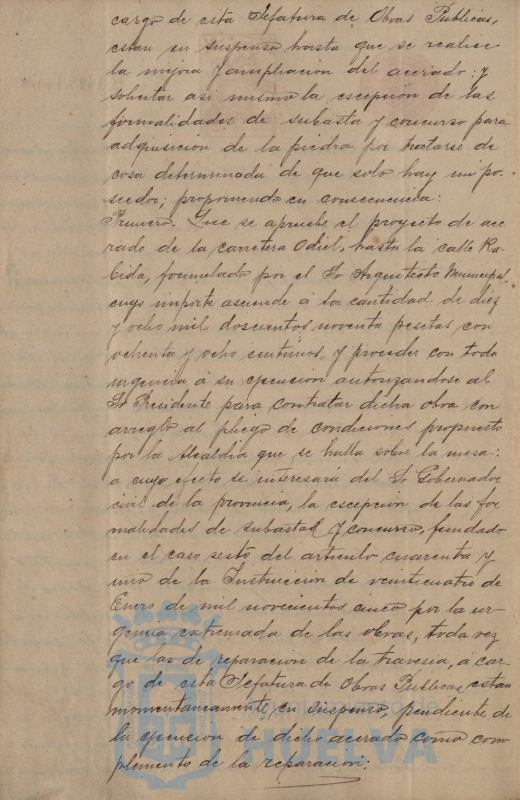 cargo de esta Jefatura de Obras Publicas,
estan en suspenso hasta que se realice
la mejora y ampliacion del acerado: y
solicitar asi mismo la escepción de las
formalidades de subasta y concurso para
adquisicion de la piedra por tratarse de
cosa determinada de que solo hay un po-
seedor; proponiendo en consecuencia:
Primero. Que se apruebe el proyecto de ace-
rado de la carretera Odiel, hasta la calle Rá-
bida, formulado por el Sr Arquitecto Municipal,
cuyo importe asciende á la cantidad de diez
y ocho mil doscientos noventa pesetas con
ochenta y ocho centimos, y proceder con toda
urgencia á su ejecucion autorizandose al
Sr Presidente para contratar dicha obra con
arreglo al pliego de condiciones propuesto
por la Alcaldia que se halla sobre la mesa:
a cuyo efecto se interesará del Sr Gobernador
civil de la provincia, la escepcion de las for
malidades de subastas y concurso, fundado
en el caso sesto del articulo cuarenta y
uno de la Instrucción de veinticuatro de
Enero de mil novecientos cinco por la ur-
gencia extremada de las obras, toda vez
que las de reparacion de la travesia, á car-
go de esta Jefatura de Obras Publicas, estan
momentaneamente en suspenso, pendiente de
la ejecucion de dicho acerado como com
plemento de la reparacion:
HUELVA